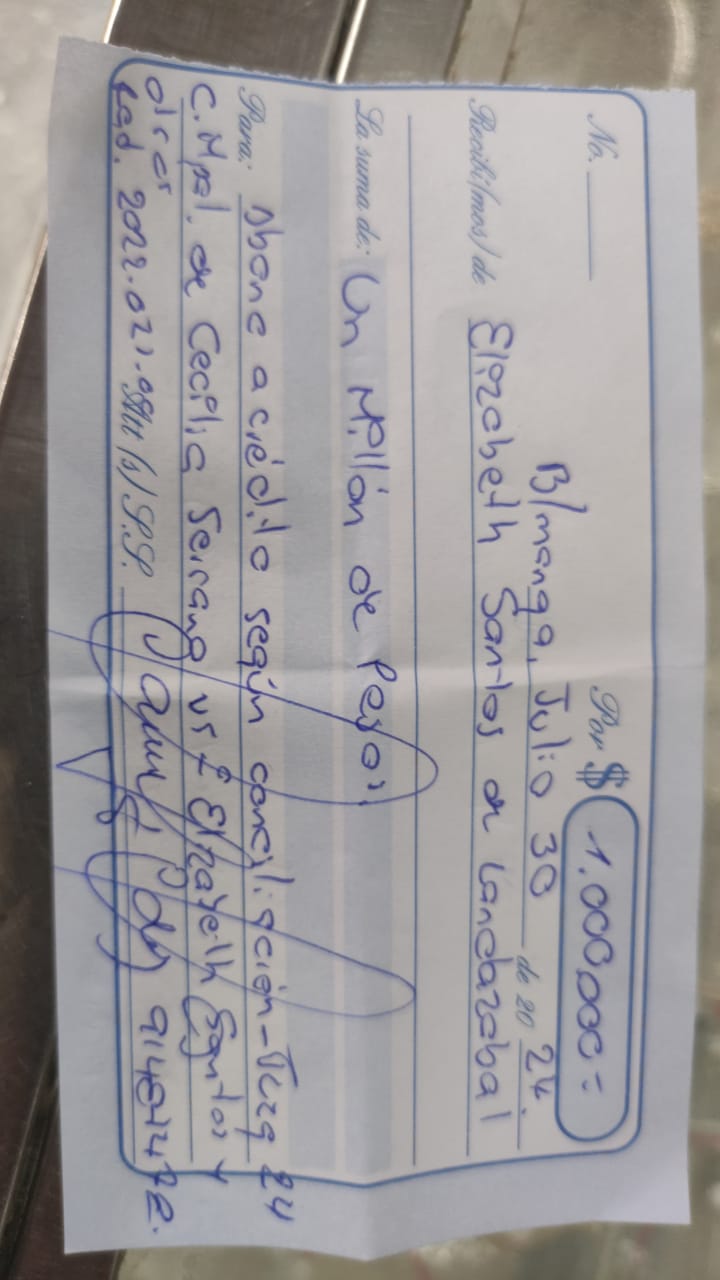 No. Por $ 1.000.000=
B/manga, Julio 30 de 20 24
Recibí(mos) de Elizabeth Santos de Landazabal
La suma de: Un Millón de Pesos.
Para: Abono a crédito según conciliación - Juzg 24
C. Mpal. de Cecilia Serrano vs Elizabeth Santos y
otros
Rad. 2022.021. (s) S.S.